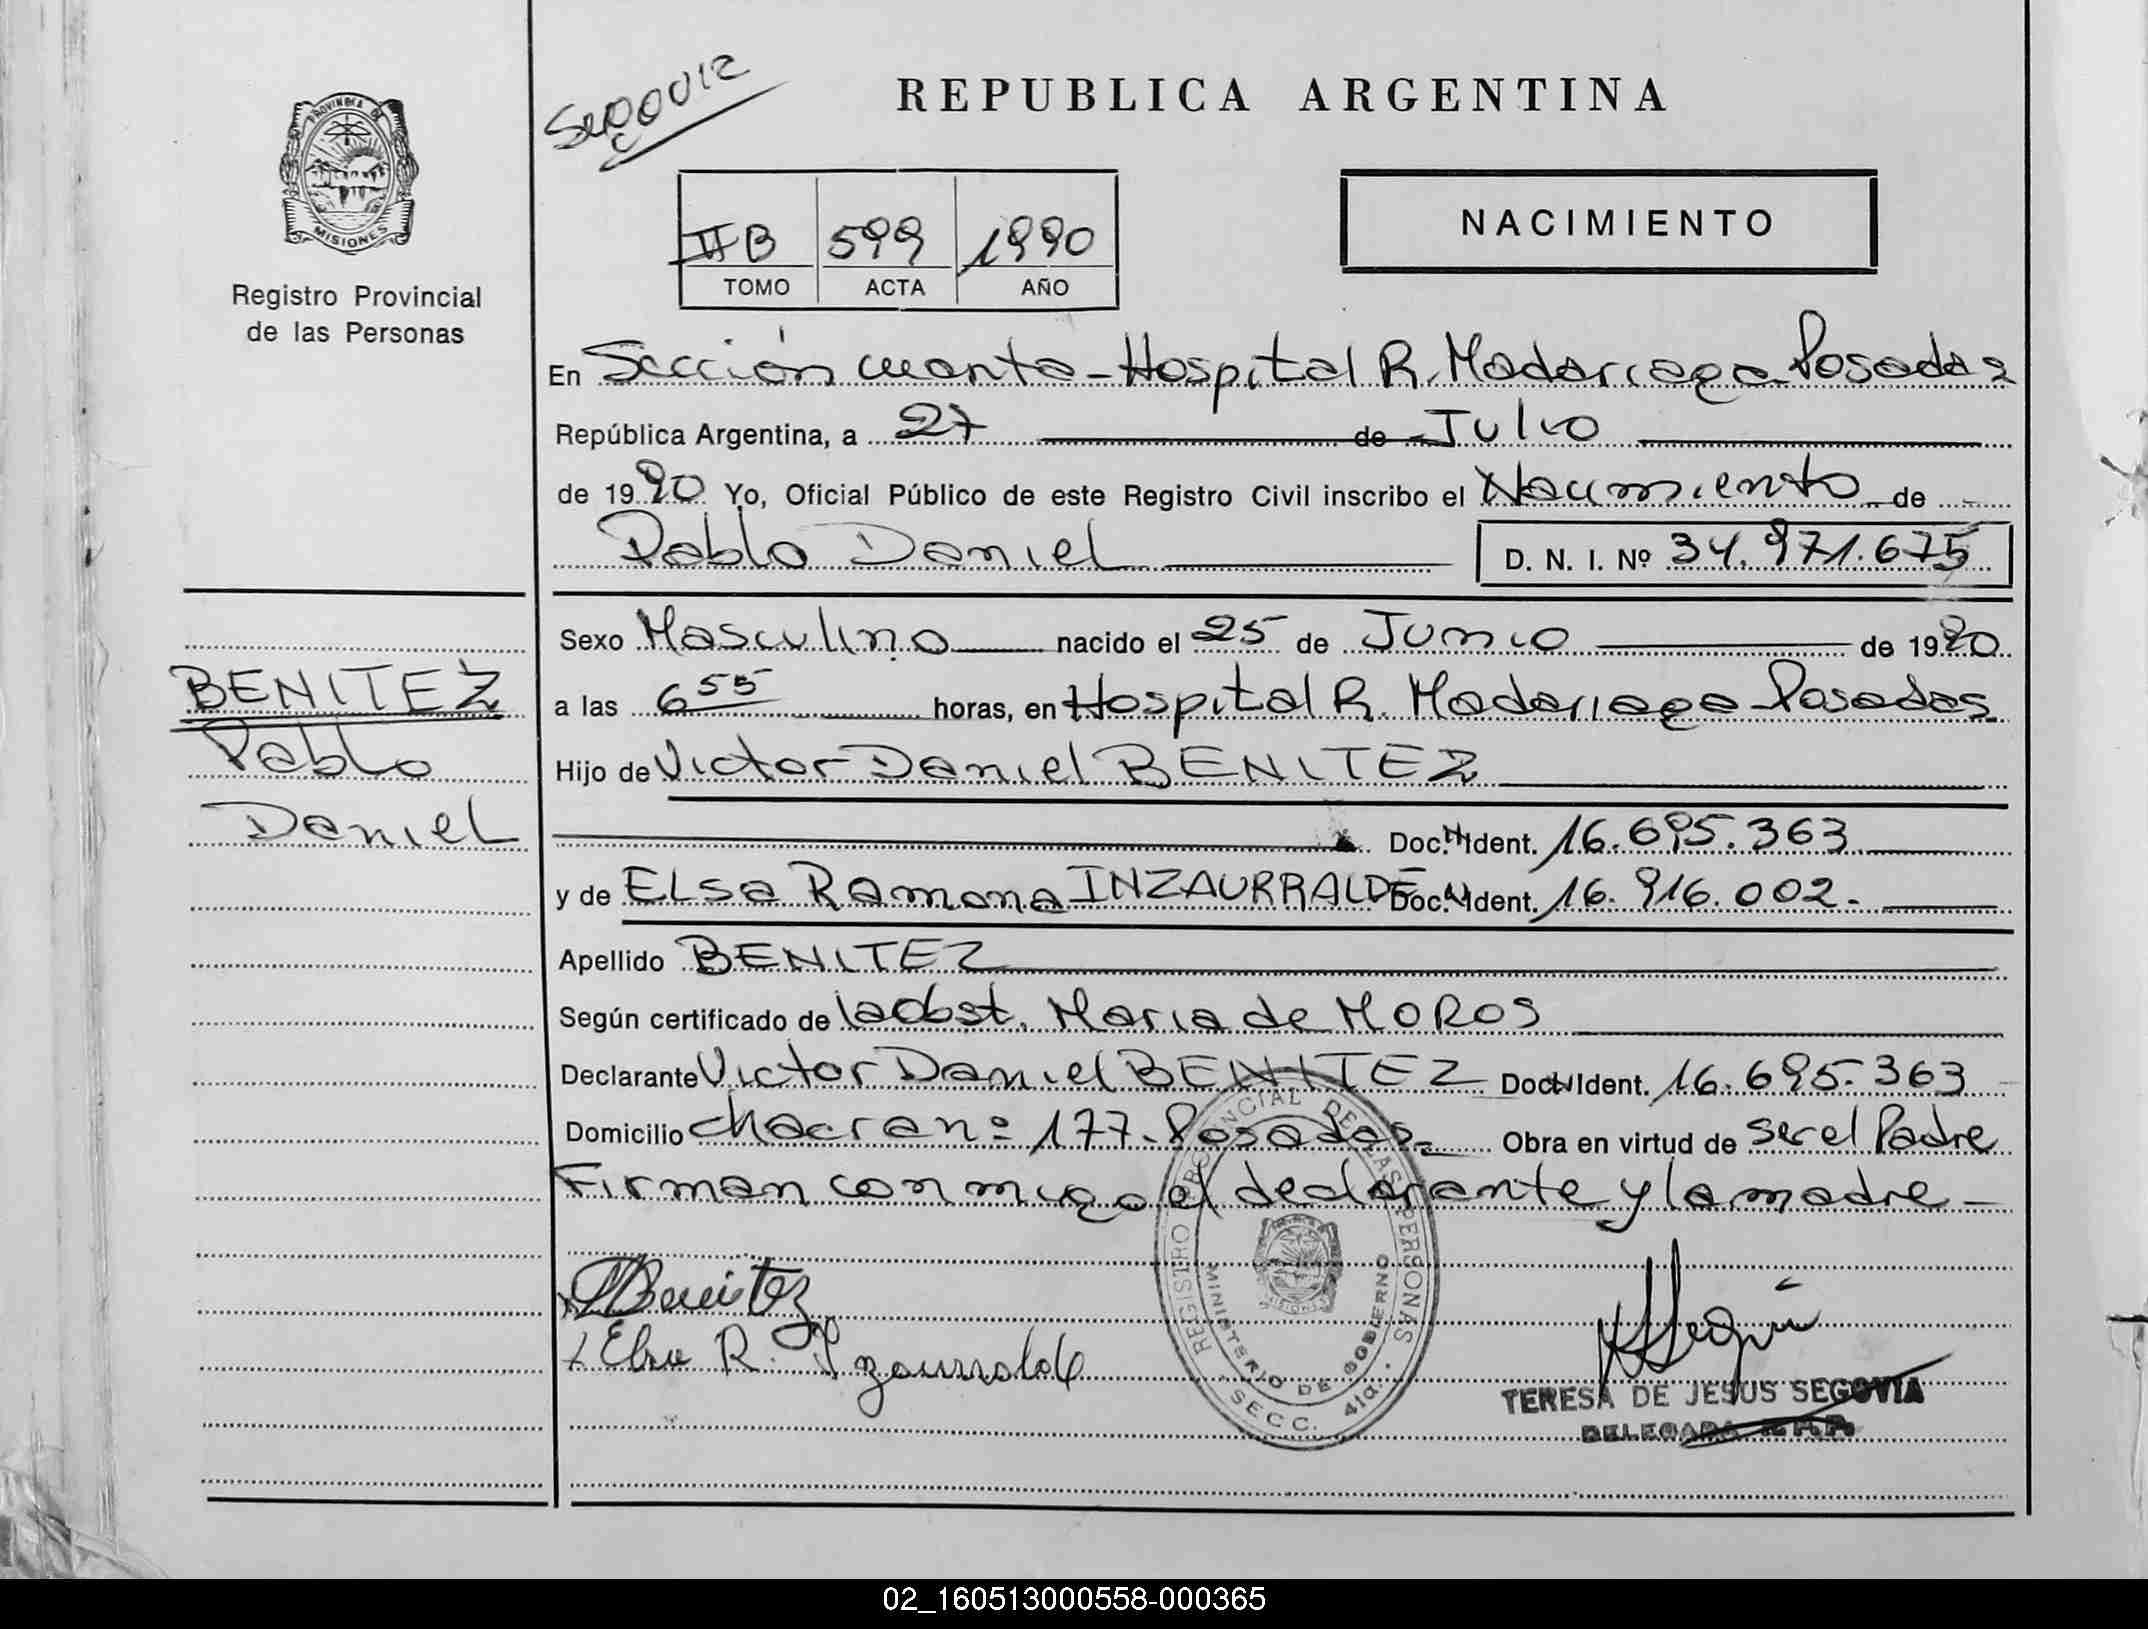 Segovia
REPUBLICA ARGENTINA
PROVINCIA DE
MISIONES
Registro Provincial
de las Personas
II B 599 1990
TOMO ACTA AÑO
NACIMIENTO
En Sección cuarta - Hospital R. Madariaga Posadas
República Argentina, a 27 de Julio
de 1990 Yo, Oficial Público de este Registro Civil inscribo el Nacimiento de
Pablo Daniel D. N. I. Nº 34.971.675
Sexo Masculino nacido el 25 de Junio de 1990
BENITEZ
Pablo
Daniel
a las 6 55 horas, en Hospital R. Madariaga Posadas
Hijo de Victor Daniel BENITEZ
Doc. N Ident. 16.695.363
y de Elsa Ramona INZAURRALDE Doc. N Ident. 16.916.002.
Apellido BENITEZ
Según certificado de la obst. Maria de MOROS
Declarante Victor Daniel BENITEZ Doc. N Ident. 16.695.363
Domicilio chacra nº 177 - Posadas - Obra en virtud de ser el Padre
Firman conmigo el declarante y la madre -
Benitez
Elsa R. Inzaurralde
REGISTRO PROVINCIAL DE LAS PERSONAS
MINISTERIO DE GOBIERNO
SECC. 4ta.
MISIONES
TERESA DE JESUS SEGOVIA
DELEGADA R.P.P.
02_160513000558-000365